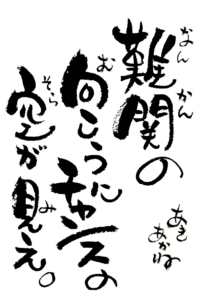 なんかん
難関の
む
向こうにチャンスの
そら み
空が見え。
あき
あかね